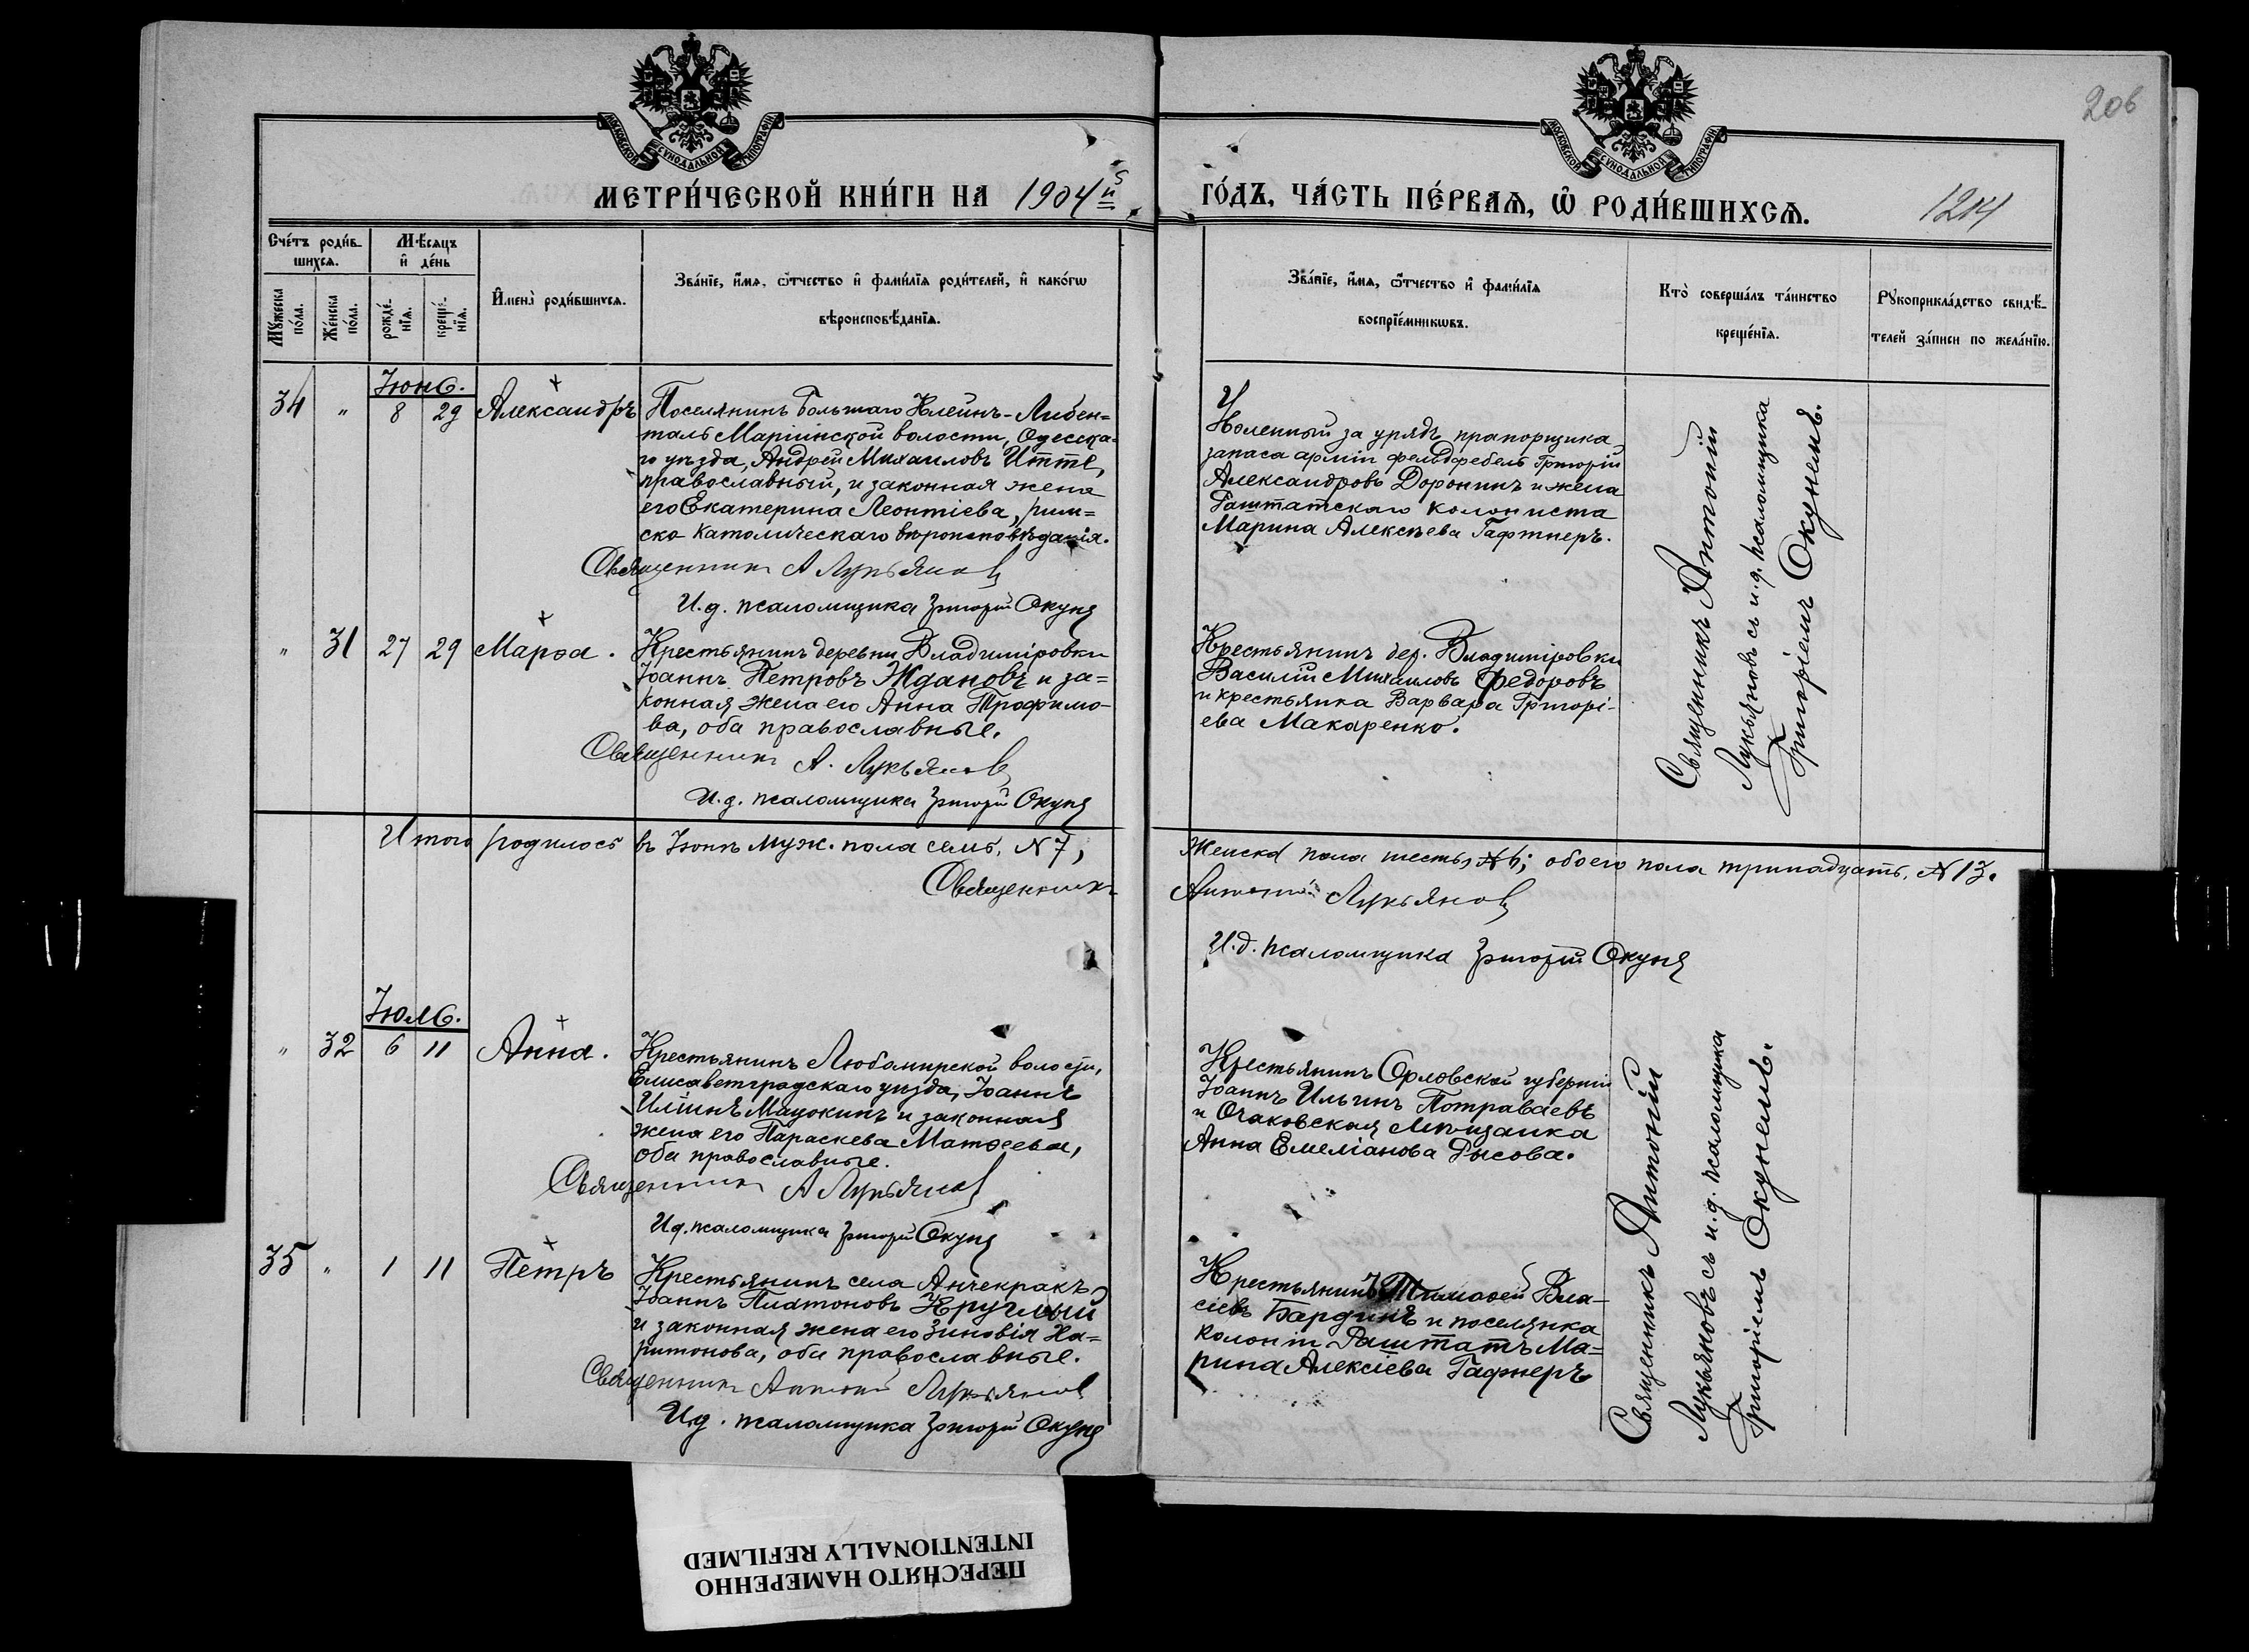 206
МОСКОВСКОЙ СУНОДАЛЬНОЙ ТИПОГРАФІИ
МОСКОВСКОЙ СУНОДАЛЬНОЙ ТИПОГРАФІИ
МЕТРИ́ЧЕСКОЙ КНИ́ГИ НА 1904
ГО́ДЪ, ЧА́СТЬ ПЕ́РВАѦ, Ѿ РОДИ́ВШИХСѦ.
1214
Сче́тъ роди́в-
шихсѧ.
Мѣ́сѧцъ
и҆ де́нь
Мꙋ́жеска
по́ла.
Же́нска
по́ла.
рожде́-
нїѧ.
креще́-
нїѧ.
И҆мена̀ роди́вшихсѧ.
Зва́нїе, и҆́мѧ, ѻ҆́тчество и҆ фамѝлїѧ роди́телей, и҆ како́гѡ
вѣроисповѣ́данїѧ.
Зва́нїе, и҆́мѧ, ѻ҆́тчество и҆ фамѝлїѧ
воспрїе́мникѡвъ.
Кто̀ соверша́лъ та́инство
креще́нїѧ.
Рꙋкоприкла́дство свидѣ́-
телей за́писи по жела́нїю.
Іюнь.
34 " 8 29 Александръ
Поселянинъ Большаго Клейнъ-Либен=
таль Маріинской волости, Одесска-
го уѣзда, Андрей Михаиловъ Итте,
православный, и законная жена
его Екатерина Леонтіева, рим=
ско католическаго вѣроисповѣданія.
Священникъ А Лукьяновъ
И.д. псаломщика Григорій Окунь
за урядъ прапорщика
запаса арміи фельдфебель Григорій
Александровъ Доронинъ и жена
Раштатскаго колониста
Марина Алексѣева Гафтнеръ.
" 31 27 29 Марѳа.
Крестьянинъ деревни Владиміровки
Іоаннъ Петровъ Ждановъ и за=
конная жена его Анна Трофимо-
ва, оба православные.
Священникъ А. Лукьяновъ
И.д. псаломщика Григорій Окунь
Крестьянинъ дер. Владиміровки
Василій Михаиловъ Федоровъ
и крестьянка Варвара Григорі-
ева Макаренко.
Священникъ Антоній
Лукьяновъ съ и.д. псаломщика
Григоріемъ Окунемъ.
Итого родилось въ Іюнѣ муж. пола семь, N 7,
Женска пола шесть, N 6; обоего пола тринадцать, N 13.
Священникъ
Антоній Лукьяновъ
И.д. псаломщика Григорій Окунь
Іюль.
" 32 6 11 Анна.
Крестьянинъ Любомирской волости,
Елисаветградскаго уѣзда, Іоаннъ
Ильинъ Мацокинъ и законная
жена его Параскева Матѳеева,
оба православные.
Священникъ А Лукьяновъ
И.д. псаломщика Григорій Окунь
Крестьянинъ Орловской губерніи
Іоаннъ Ильинъ Потраваевъ
и Очаковская мѣщанка
Анна Емеліанова Рысова.
35 " 1 11 Петръ
Крестьянинъ села Анчекракъ
Іоаннъ Платоновъ Круглый
и законная жена его Зиновія Ха=
ритонова, оба православные.
Священникъ Антоній Лукьяновъ
И.д. псаломщика Григорій Окунь
Крестьянинъ Тимоѳей Вла-
сіевъ Бардинъ и поселянка
колоніи Раштатъ Ма=
рина Алексіева Гафнеръ
Священникъ Антоній
Лукьяновъ съ и.д. псаломщика
Григоріемъ Окунемъ.
ПЕРЕСНЯТО НАМЕРЕННО
INTENTIONALLY REFILMED